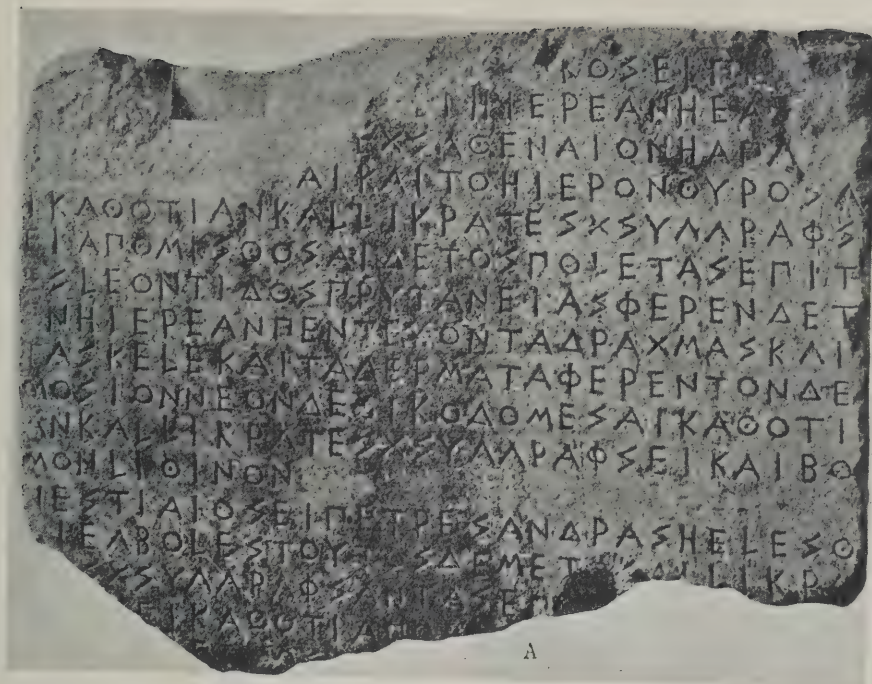 ΚΟΣΕΙΠ
ΙΗΙΕΡΕΑΝΗΕΑ
ΕΧΣΑΘΕΝΑΙΟΝΗΑΠΑ
ΑΙΚΑΙΤΟΗΙΕΡΟΝΘΥΡΟΣΑ
ΙΚΑΘΟΤΙΑΝΚΑΛΛΙΚΡΑΤΕΣΧΣΥΓΓΡΑΦΣ
ΕΙΑΠΟΜΙΣΘΟΣΑΙΔΕΤΟΣΠΟΛΕΤΑΣΕΠΙΤ
ΕΣΛΕΟΝΤΙΔΟΣΠΡΥΤΑΝΕΙΑΣΦΕΡΕΝΔΕΤ
ΕΝΗΙΕΡΕΑΝΠΕΝΤΕΚΟΝΤΑΔΡΑΧΜΑΣΚΑΙ
ΤΑΣΚΕΛΕΚΑΙΤΑΔΕΡΜΑΤΑΦΕΡΕΝΤΟΝΔΕ
ΜΟΣΙΟΝΝΕΟΝΔΕΟΙΚΟΔΟΜΕΣΑΙΚΑΘΟΤΙ
ΑΝΚΑΛΛΙΚΡΑΤΕΣΧΣΥΓΓΡΑΦΣΕΙΚΑΙΒΟ
ΜΟΝΛΙΘΙΝΟΝ
ΗΕΣΤΙΑΙΟΣΕΙΠΕΤΡΕΣΑΝΔΡΑΣΗΕΛΕΣΘ
ΑΙΕΓΒΟΛΕΣΤΟΥΤΟΣΔΕΜΕΤΑΚΑΛΛΙΚΡ
ΣΣΥΓΓΡΑΦΣΑΝΤΑΣΕΠ
ΕΙΚΑΘΟΤΙΑΠ
Α